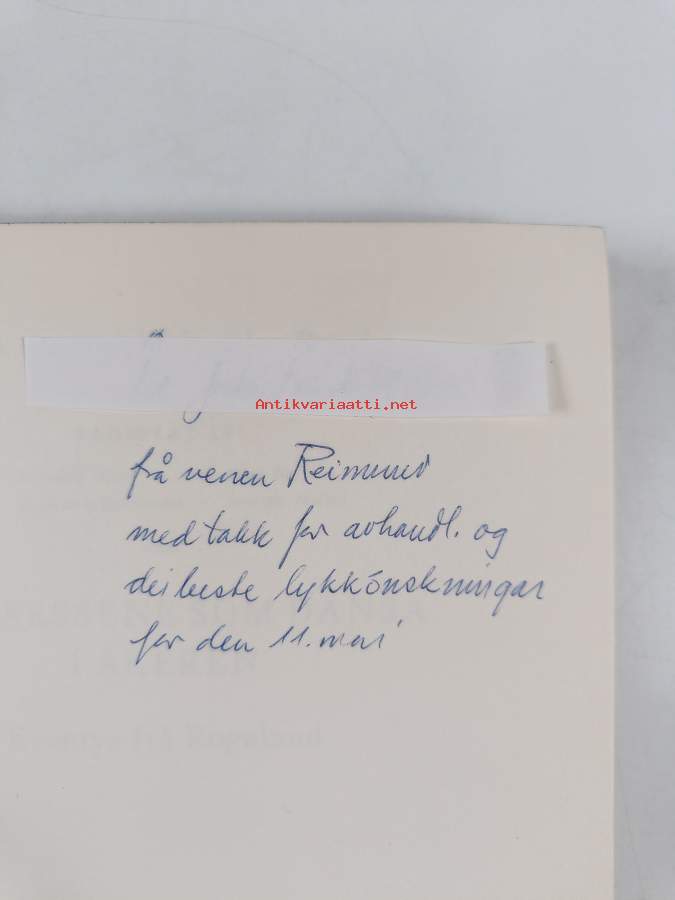 Antikvariaatti.net
frå venen Reimund
med takk for avhandl. og
dei beste lykkönskningar
for den 11. mai